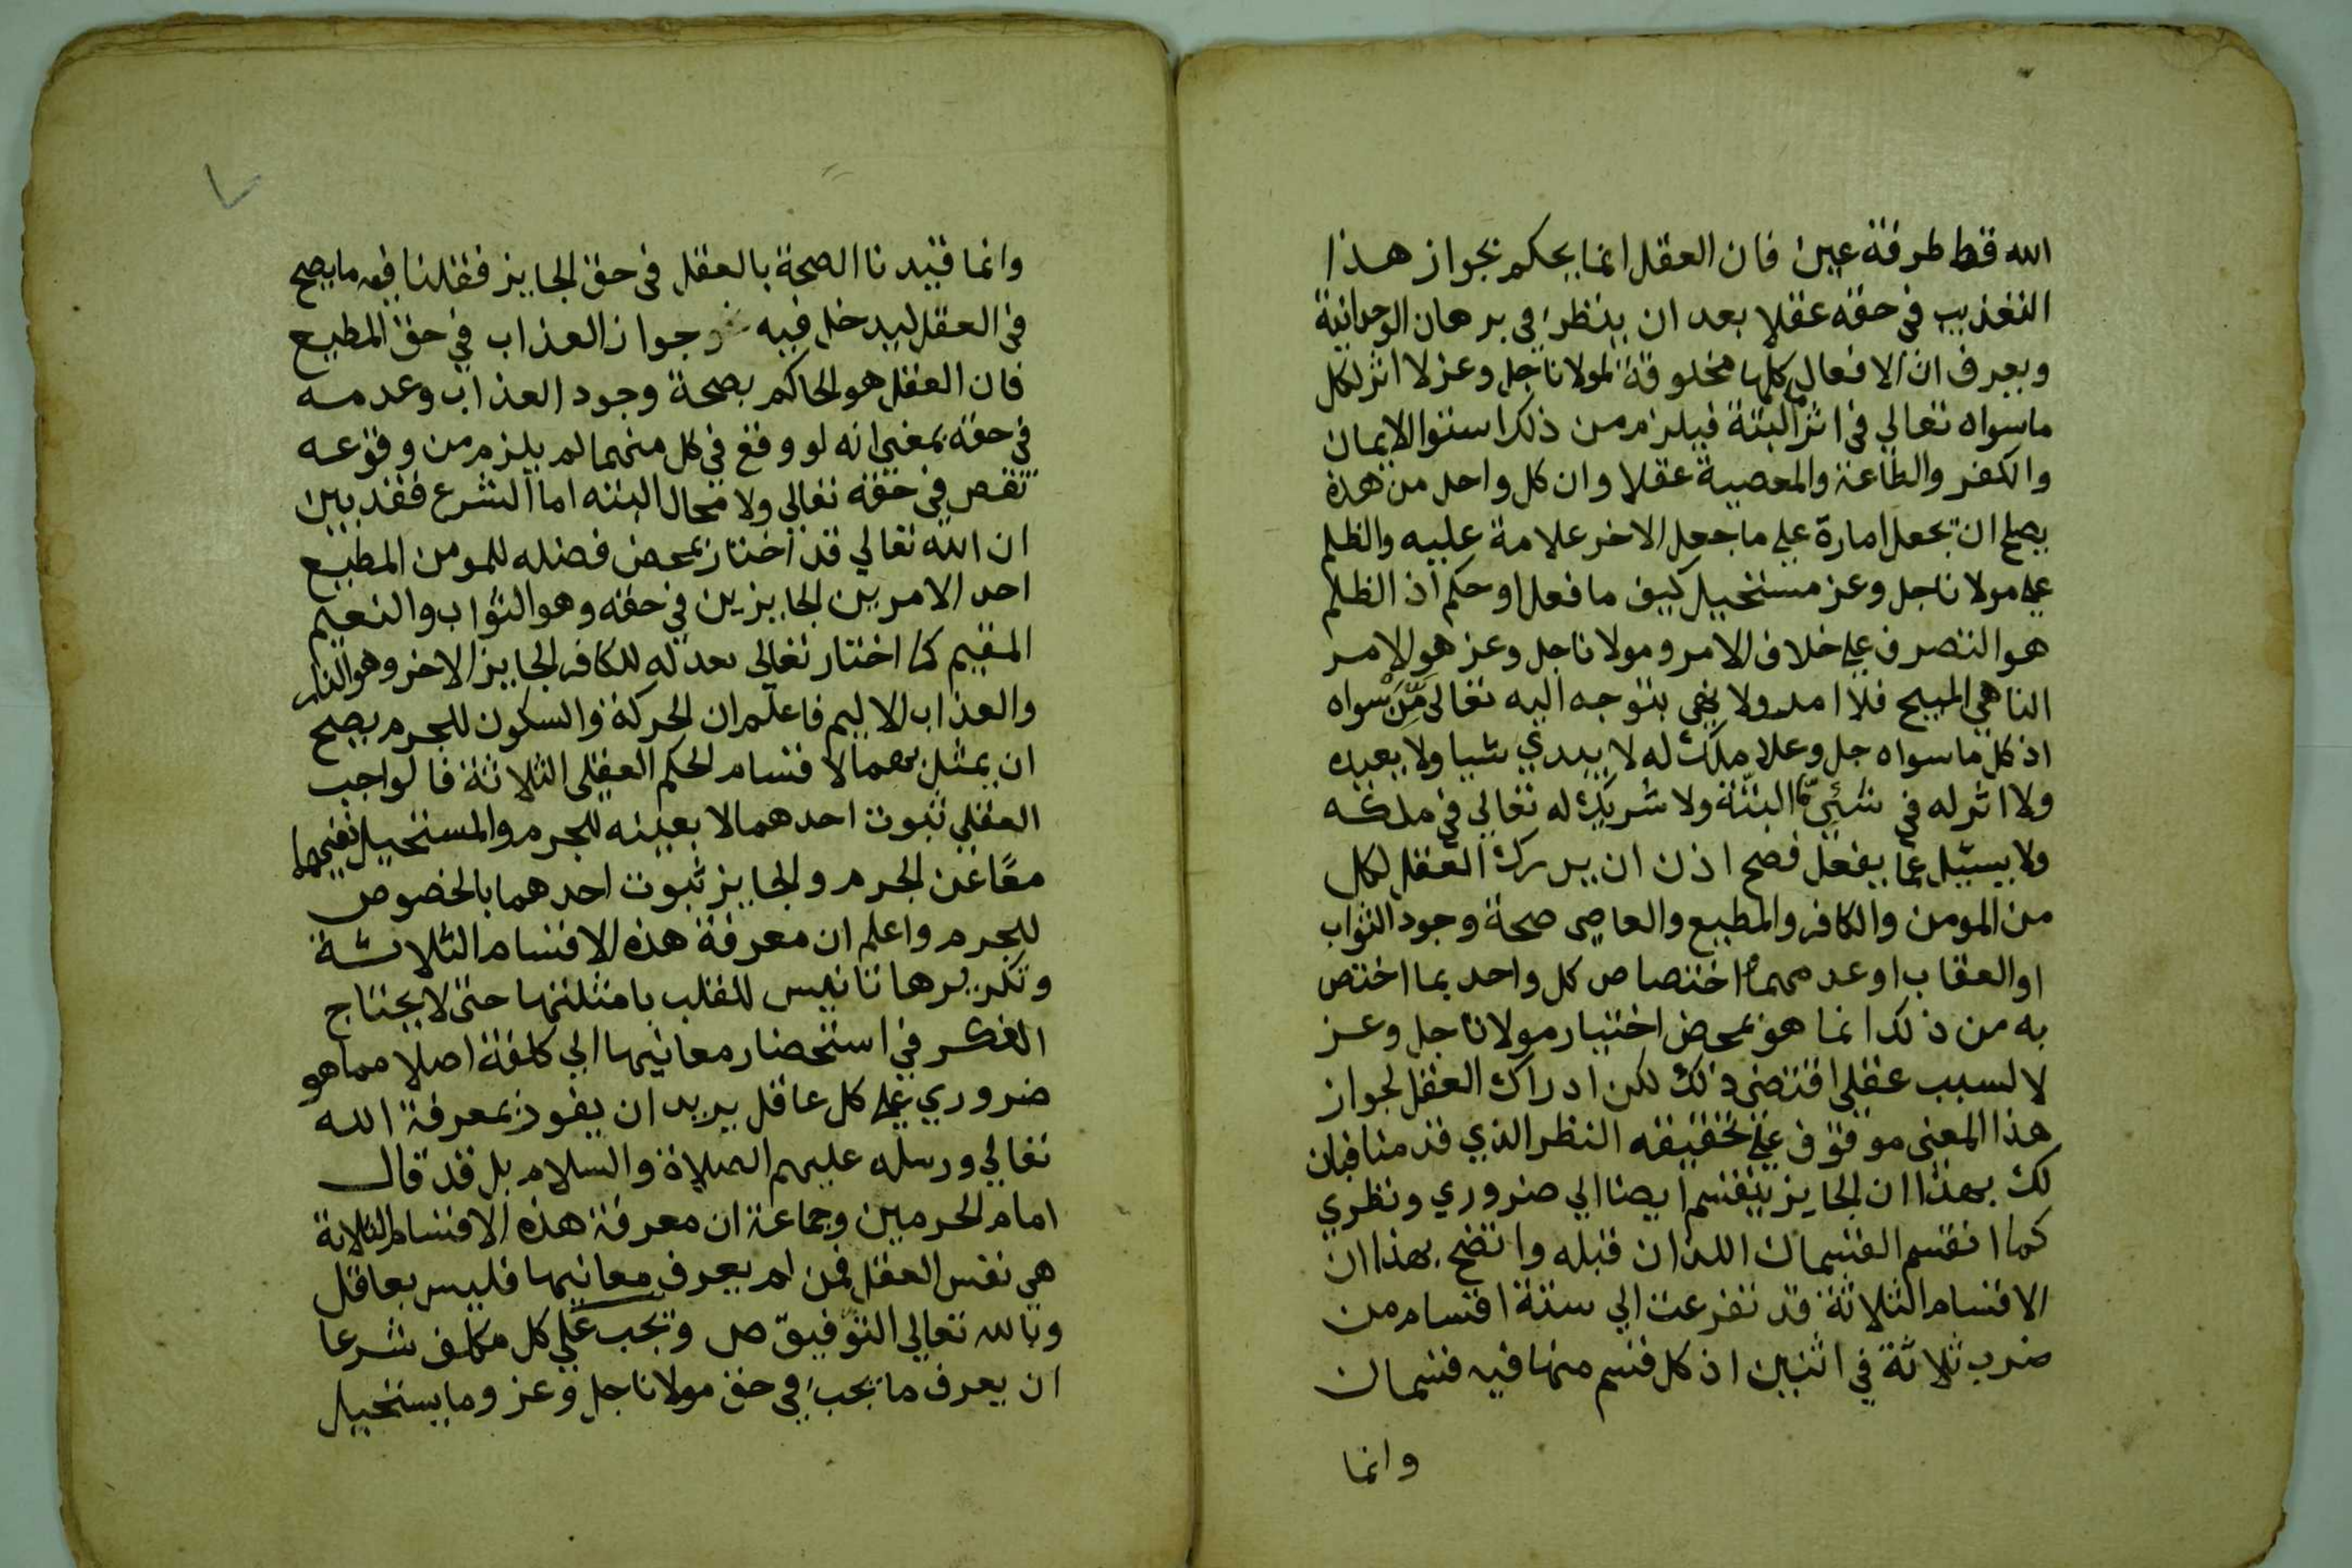 الله قط طرفة عين فان العقل انما يحكم بجواز هذا
التعذيب في حقه عقلا بعد ان ينظر في برهان الوحدانية
ويعرف ان الافعال كلها مخلوقة لمولانا جل وعز لا اثر لكل
ماسواه تعالي في اثر ما البتة فيلزم من ذلك استوا الايمان
والكفر والطاعة والمعصية عقلا وان كل واحد من هذه
يصلح ان يجعل امارة علي ما جعل الاخر علامة عليه والظلم
علي مولانا جل وعز مستحيل كيف ما فعل او حكم اذ الظلم
هو التصرف علي خلاف الامر ومولانا جل وعز هو الامر
الناهي المبيح فلا امر ولا نهي يتوجه اليه تعالي ممن سواه
اذ كل ما سواه جل وعلا ملك له لا يبدي شيا ولا يعيده
ولا اثر له في شيء ما البتة ولا شريك له تعالي في ملكه
ولا يسئل عما يفعل فصح اذن ان يدرك العقل لكل
من المومن والكافر والمطيع والعاصي صحة وجود الثواب
او العقاب او عدمهما اختصاص كل واحد بما اختص
به من ذلك انما هو بمحض اختيار مولانا جل وعز
لا لسبب عقلي اقتضي ذلك لكن ادراك العقل لجواز
هذا المعني موقوف علي تحقيقه النظر الذي قدمنا فبان
لك بهذا ان الجايز ينقسم ايضا الي ضروري ونظري
كما انقسم القسمان اللذان قبله واتضح بهذا ان
الاقسام الثلاثة قد تفرعت الي ستة اقسام من
ضرب ثلاثة في اثنين اذ كل قسم منها فيه قسمان
وانما
وانما قيدنا الصحة بالعقل في حق الجايز فقلنا فيه ما يصح
في العقل ليدخل فيه وجواز العذاب في حق المطيع
فان العقل هو الحاكم بصحة وجود العذاب وعدمه
في حقه بمعني انه لو وقع في كل منهما لم يلزم من وقوعه
نقص في حقه تعالي ولا محال البته اما الشرع فقد بين
ان الله تعالي قد اختار بمحض فضله للمومن المطيع
احد الامرين الجايزين في حقه وهو الثواب والنعيم
المقيم كما اختار تعالي بعدله للكافر الجايز الاخر وهو النار
والعذاب الاليم فاعلم ان الحركة والسكون للجرم يصح
ان يمثل بهما لاقسام الحكم العقلي الثلاثة فالواجب
العقلي ثبوت احدهما لا بعينه للجرم والمستحيل نفيهما
معًا عن الجرم والجايز ثبوت احدهما بالخصوص
للجرم واعلم ان معرفة هذه الاقسام الثلاثة
وتكريرها تانيس للقلب بامثلتها حتي لا يحتاج
الفكر في استحضار معانيها الي كلفة اصلا مما هو
ضروري علي كل عاقل يريد ان يفوز بمعرفة الله
تعالي ورسله عليهم الصلاة والسلام بل قد قال
امام الحرمين وجماعة ان معرفة هذه الاقسام الثلاثة
هي نفس العقل فمن لم يعرف معانيها فليس بعاقل
وبالله تعالي التوفيق ص ويجب علي كل مكلف شرعا
ان يعرف ما يجب في حق مولانا جل وعز وما يستحيل